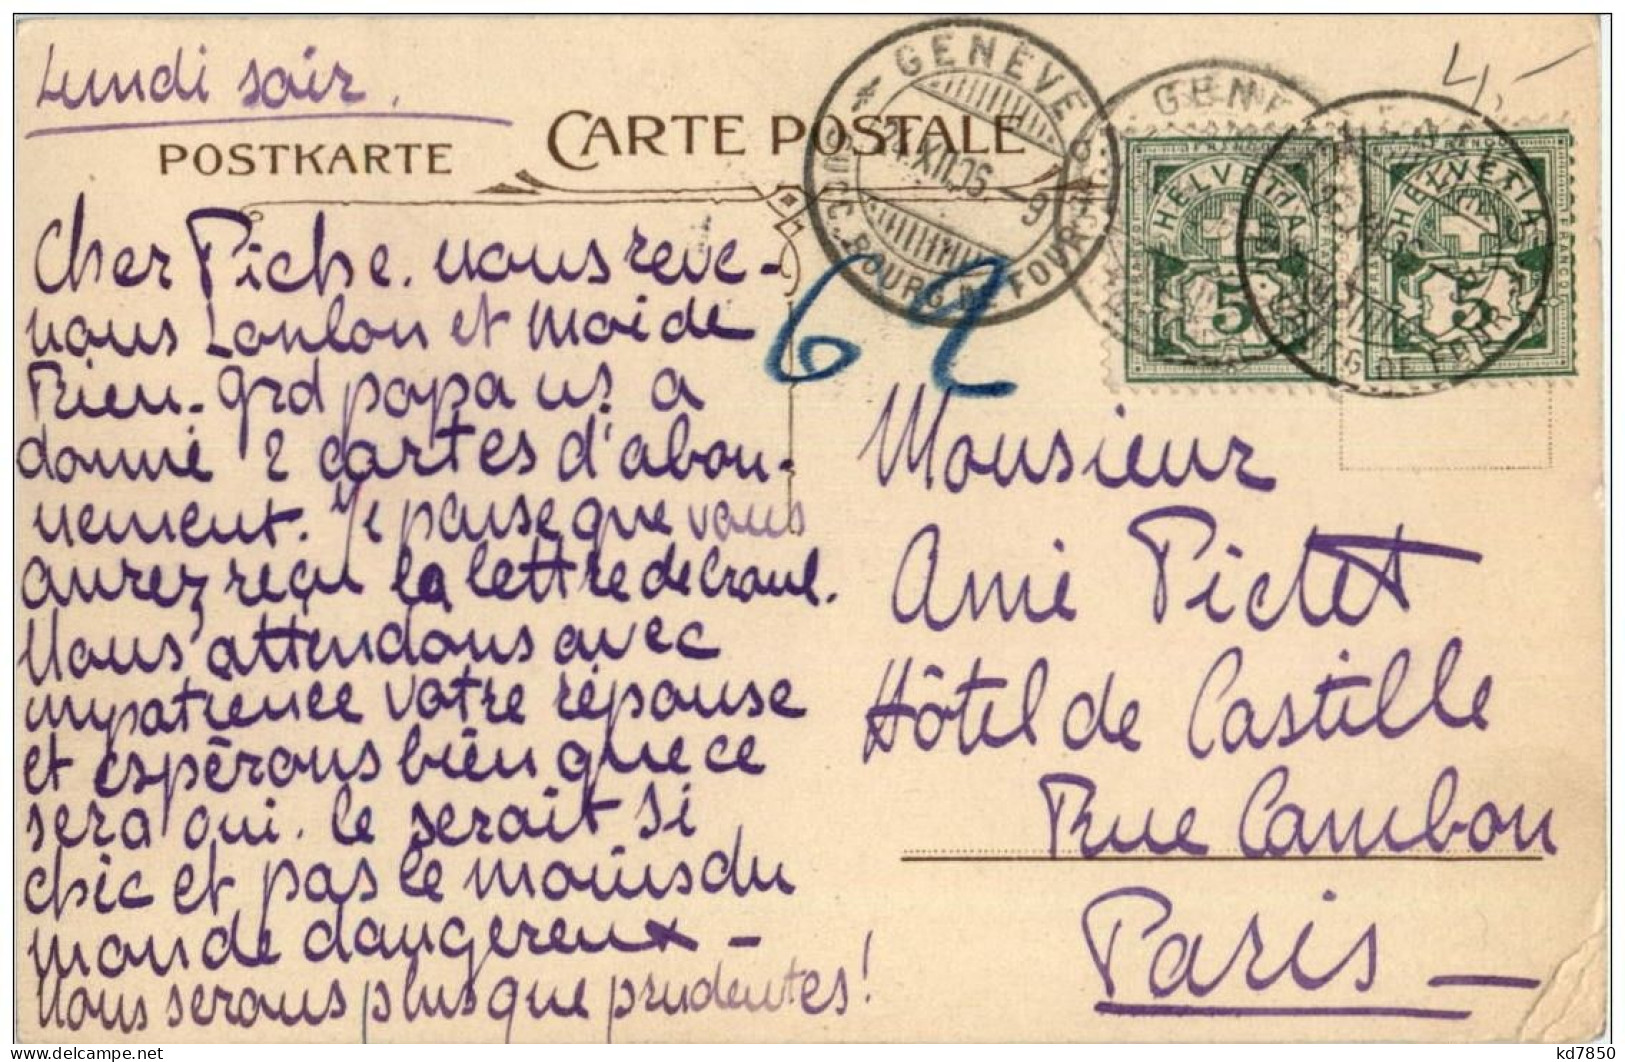 Lundi soir.
POSTKARTE
CARTE POSTALE
GENÈVE
24.XII.06.-9
SUCC. BOURG DE FOUR
GENÈVE
HELVETIA
5
HELVETIA
FRANCO
5
BOURG DE FOUR
4,-
62
Cher Piche. nous reve-
nous Loulou et moi de
Rien. grd papa ns a
donné 2 cartes d'abon-
nement. Je pense que vous
aurez reçu la lettre de
Nous attendons avec
impatience votre réponse
et espérons bien que ce
sera oui. Ce serait si
chic et pas le moins du
monde dangereux -
Nous serons plus que prudentes!
Monsieur
Amé Pictet
Hôtel de Castille
Rue Cambon
Paris -
kd7850